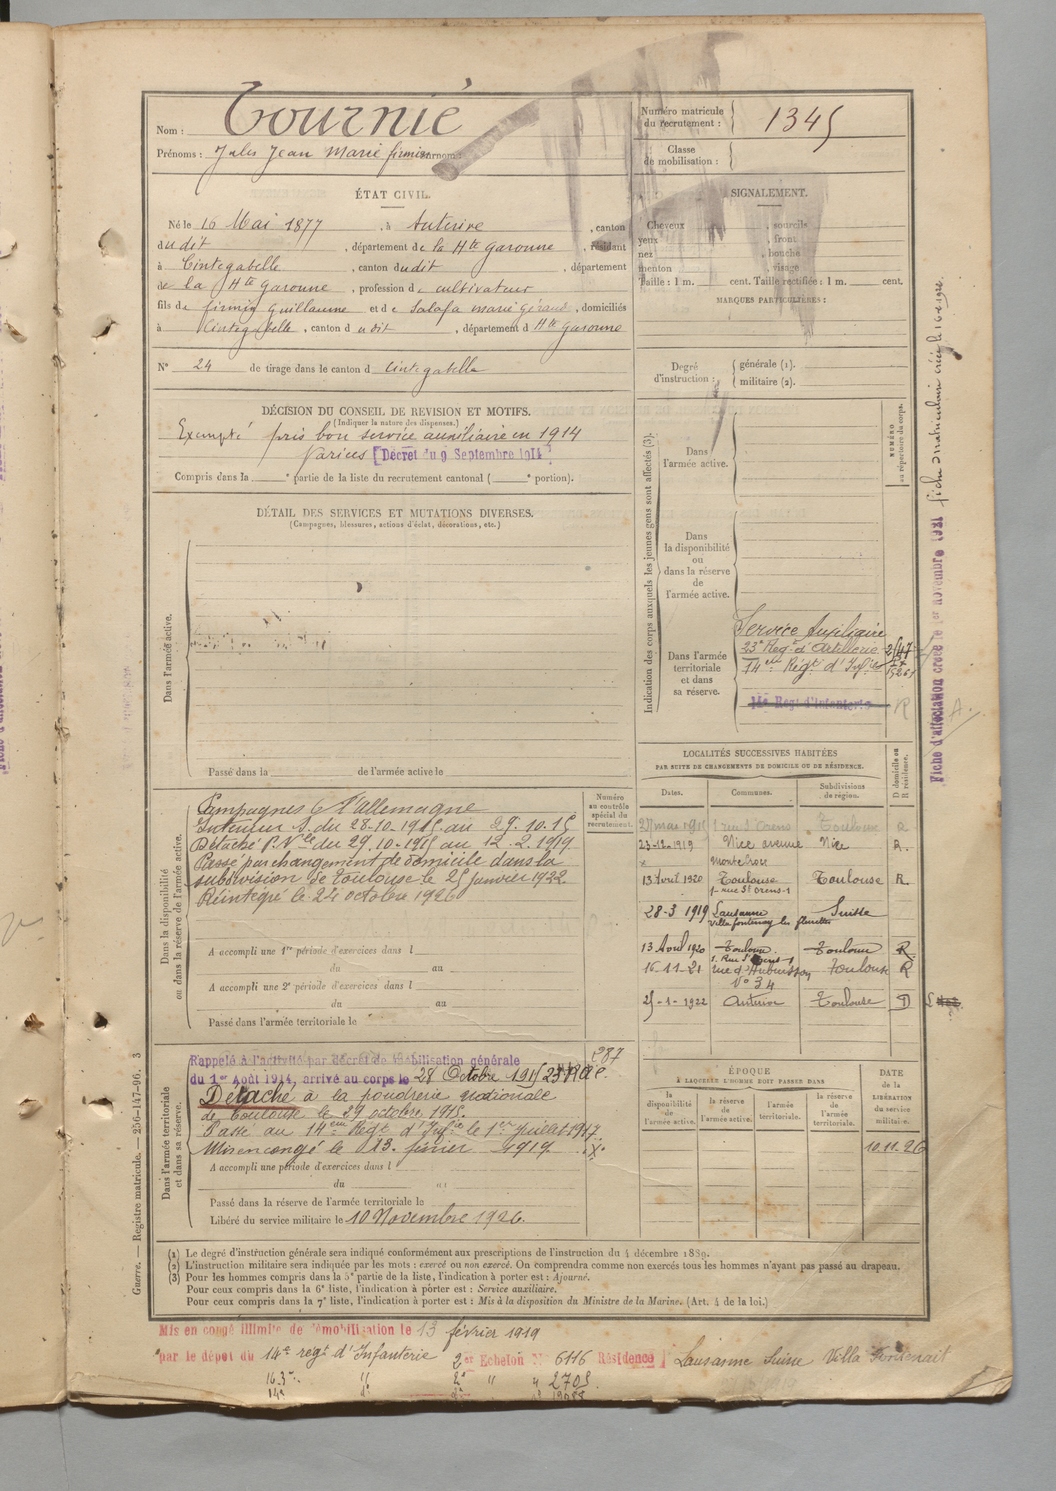 Nom : Tournié
Prénoms : Jules Jean Marie firmin
Numéro matricule du recrutement : 1345
Classe de mobilisation :
ÉTAT CIVIL.
Né le 16 Mai 1877, à Auterive, canton
du dit, département de la Hte Garonne, résidant
à Cintegabelle, canton dudit, département
de la Hte Garonne, profession de cultivateur
fils de firmin Guillaume et de Salafa marie Géraud, domiciliés
à Cintegabelle, canton dudit, département d Hte Garonne
N° 24 de tirage dans le canton d Cintegabelle
SIGNALEMENT.
Cheveux , sourcils
yeux , front
nez , bouche
menton , visage
Taille : 1 m. cent. Taille rectifiée : 1 m. cent.
MARQUES PARTICULIÈRES :
Degré d'instruction : générale (1).
militaire (2).
DÉCISION DU CONSEIL DE REVISION ET MOTIFS.
(Indiquer la nature des dispenses.)
Exempté pris bon service auxiliaire en 1914
Varices [Décret du 9 Septembre 1914]
Compris dans la e partie de la liste du recrutement cantonal ( e portion).
DÉTAIL DES SERVICES ET MUTATIONS DIVERSES.
(Campagnes, blessures, actions d'éclat, décorations, etc.)
Dans l'armée active.
Passé dans la de l'armée active le
Indication des corps auxquels les jeunes gens sont affectés (3).
NUMÉRO au répertoire du corps.
Dans l'armée active.
Dans la disponibilité ou dans la réserve de l'armée active.
Dans l'armée territoriale et dans sa réserve.
Service Auxiliaire
23e Regt d'Artillerie
14eme Régt d'Infie
14e Regt d'Infanterie
R
LOCALITÉS SUCCESSIVES HABITÉES
PAR SUITE DE CHANGEMENTS DE DOMICILE OU DE RÉSIDENCE.
Dates. Communes. Subdivisions de région. D domicile ou R résidence.
1 rue St Orens Toulouse R
23-12-1919 Nice avenue Nice R.
13 Avril 1920 Toulouse Toulouse R.
1- rue St Orens-1
28-3 1919 Lausanne Suisse
13 Avril 1920 Toulouse Toulouse R
1. Rue St Orens-1
16-11-21 rue d'Aubuisson Toulouse R
N° 34
25-1-1922 Auterive Toulouse D
Dans la disponibilité ou dans la réserve de l'armée active.
Numéro au contrôle spécial du recrutement.
Campagnes Ct l'allemagne
Intérieur S. du 28-10-1915 au 29.10.15
Détaché P. Nle du 29.10-1915 au 12.2.1919
Passé par changement de domicile dans la
subdivision de Toulouse le 25 janvier 1922.
Réintégré le 24 octobre 1926
A accompli une 1re période d'exercices dans l
du au
A accompli une 2e période d'exercices dans l
du au
Passé dans l'armée territoriale le
Dans l'armée territoriale et dans sa réserve.
Rappelé à l'activité par décret de mobilisation générale
du 1er Août 1914, arrivé au corps le 28 Octobre 1915
287
Détaché à la poudrerie Nationale
de Toulouse le 29 octobre 1915.
Passé au 14eme Régt d'Infie le 1er Juillet 1917.
Mis en congé le 13. février 1919
A accompli une période d'exercices dans l
du au
Passé dans la réserve de l'armée territoriale le
Libéré du service militaire le 10 Novembre 1926.
ÉPOQUE
À LAQUELLE L'HOMME DOIT PASSER DANS
la disponibilité de l'armée active. la réserve de l'armée active. l'armée territoriale. la réserve de l'armée territoriale.
DATE de la LIBÉRATION du service militaire.
10.11.26
(1) Le degré d'instruction générale sera indiqué conformément aux prescriptions de l'instruction du 4 décembre 1889.
(2) L'instruction militaire sera indiquée par les mots : exercé ou non exercé. On comprendra comme non exercés tous les hommes n'ayant pas passé au drapeau.
(3) Pour les hommes compris dans la 5e partie de la liste, l'indication à porter est : Ajourné.
Pour ceux compris dans la 6e liste, l'indication à porter est : Service auxiliaire.
Pour ceux compris dans la 7e liste, l'indication à porter est : Mis à la disposition du Ministre de la Marine. (Art. 4 de la loi.)
Mis en congé illimité de démobilisation le 13 février 1919
par le dépôt du 14e regt d'Infanterie 2er Echelon N° 6116 Résidence] Lausanne Suisse Villa Fontenait
2705
Guerre. — Registre matricule. — 256-147-96. 3
Fiche d'affectation créée le 1er novembre 1921